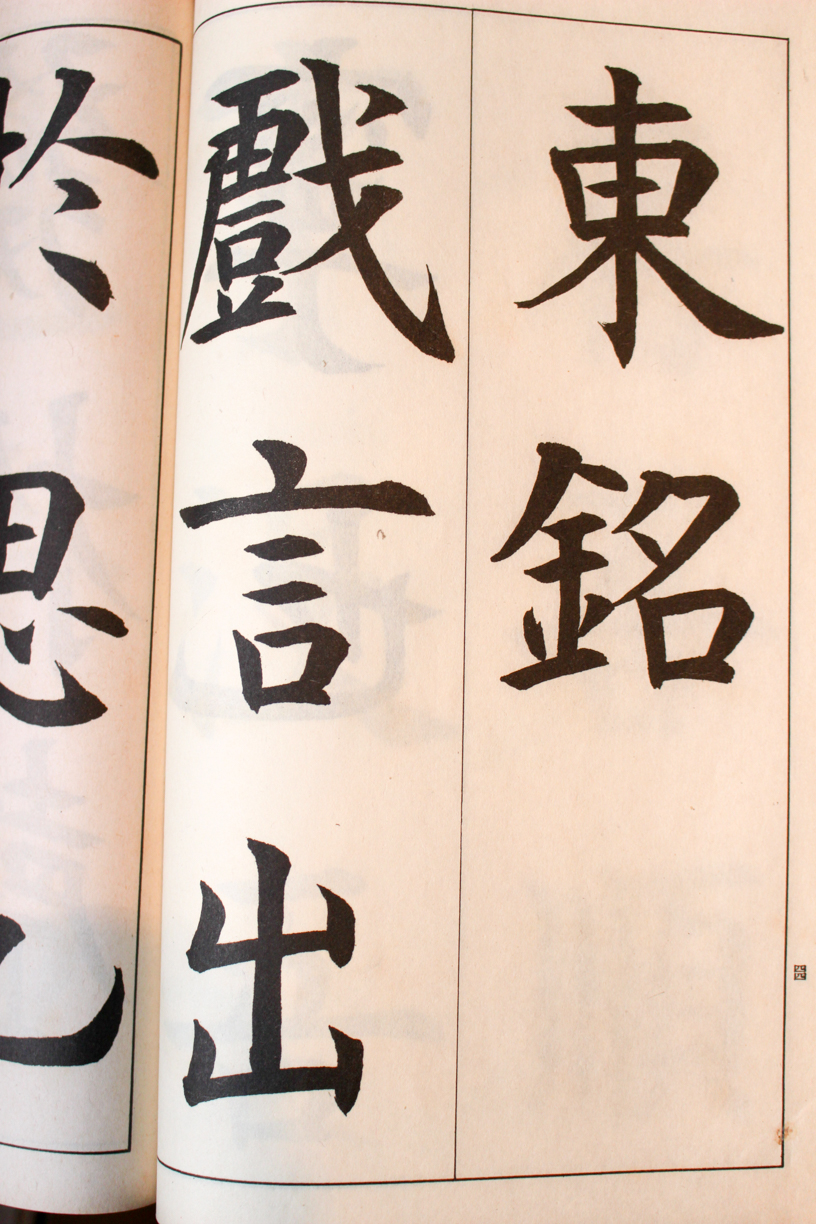 東銘
戲言出
於思
四四